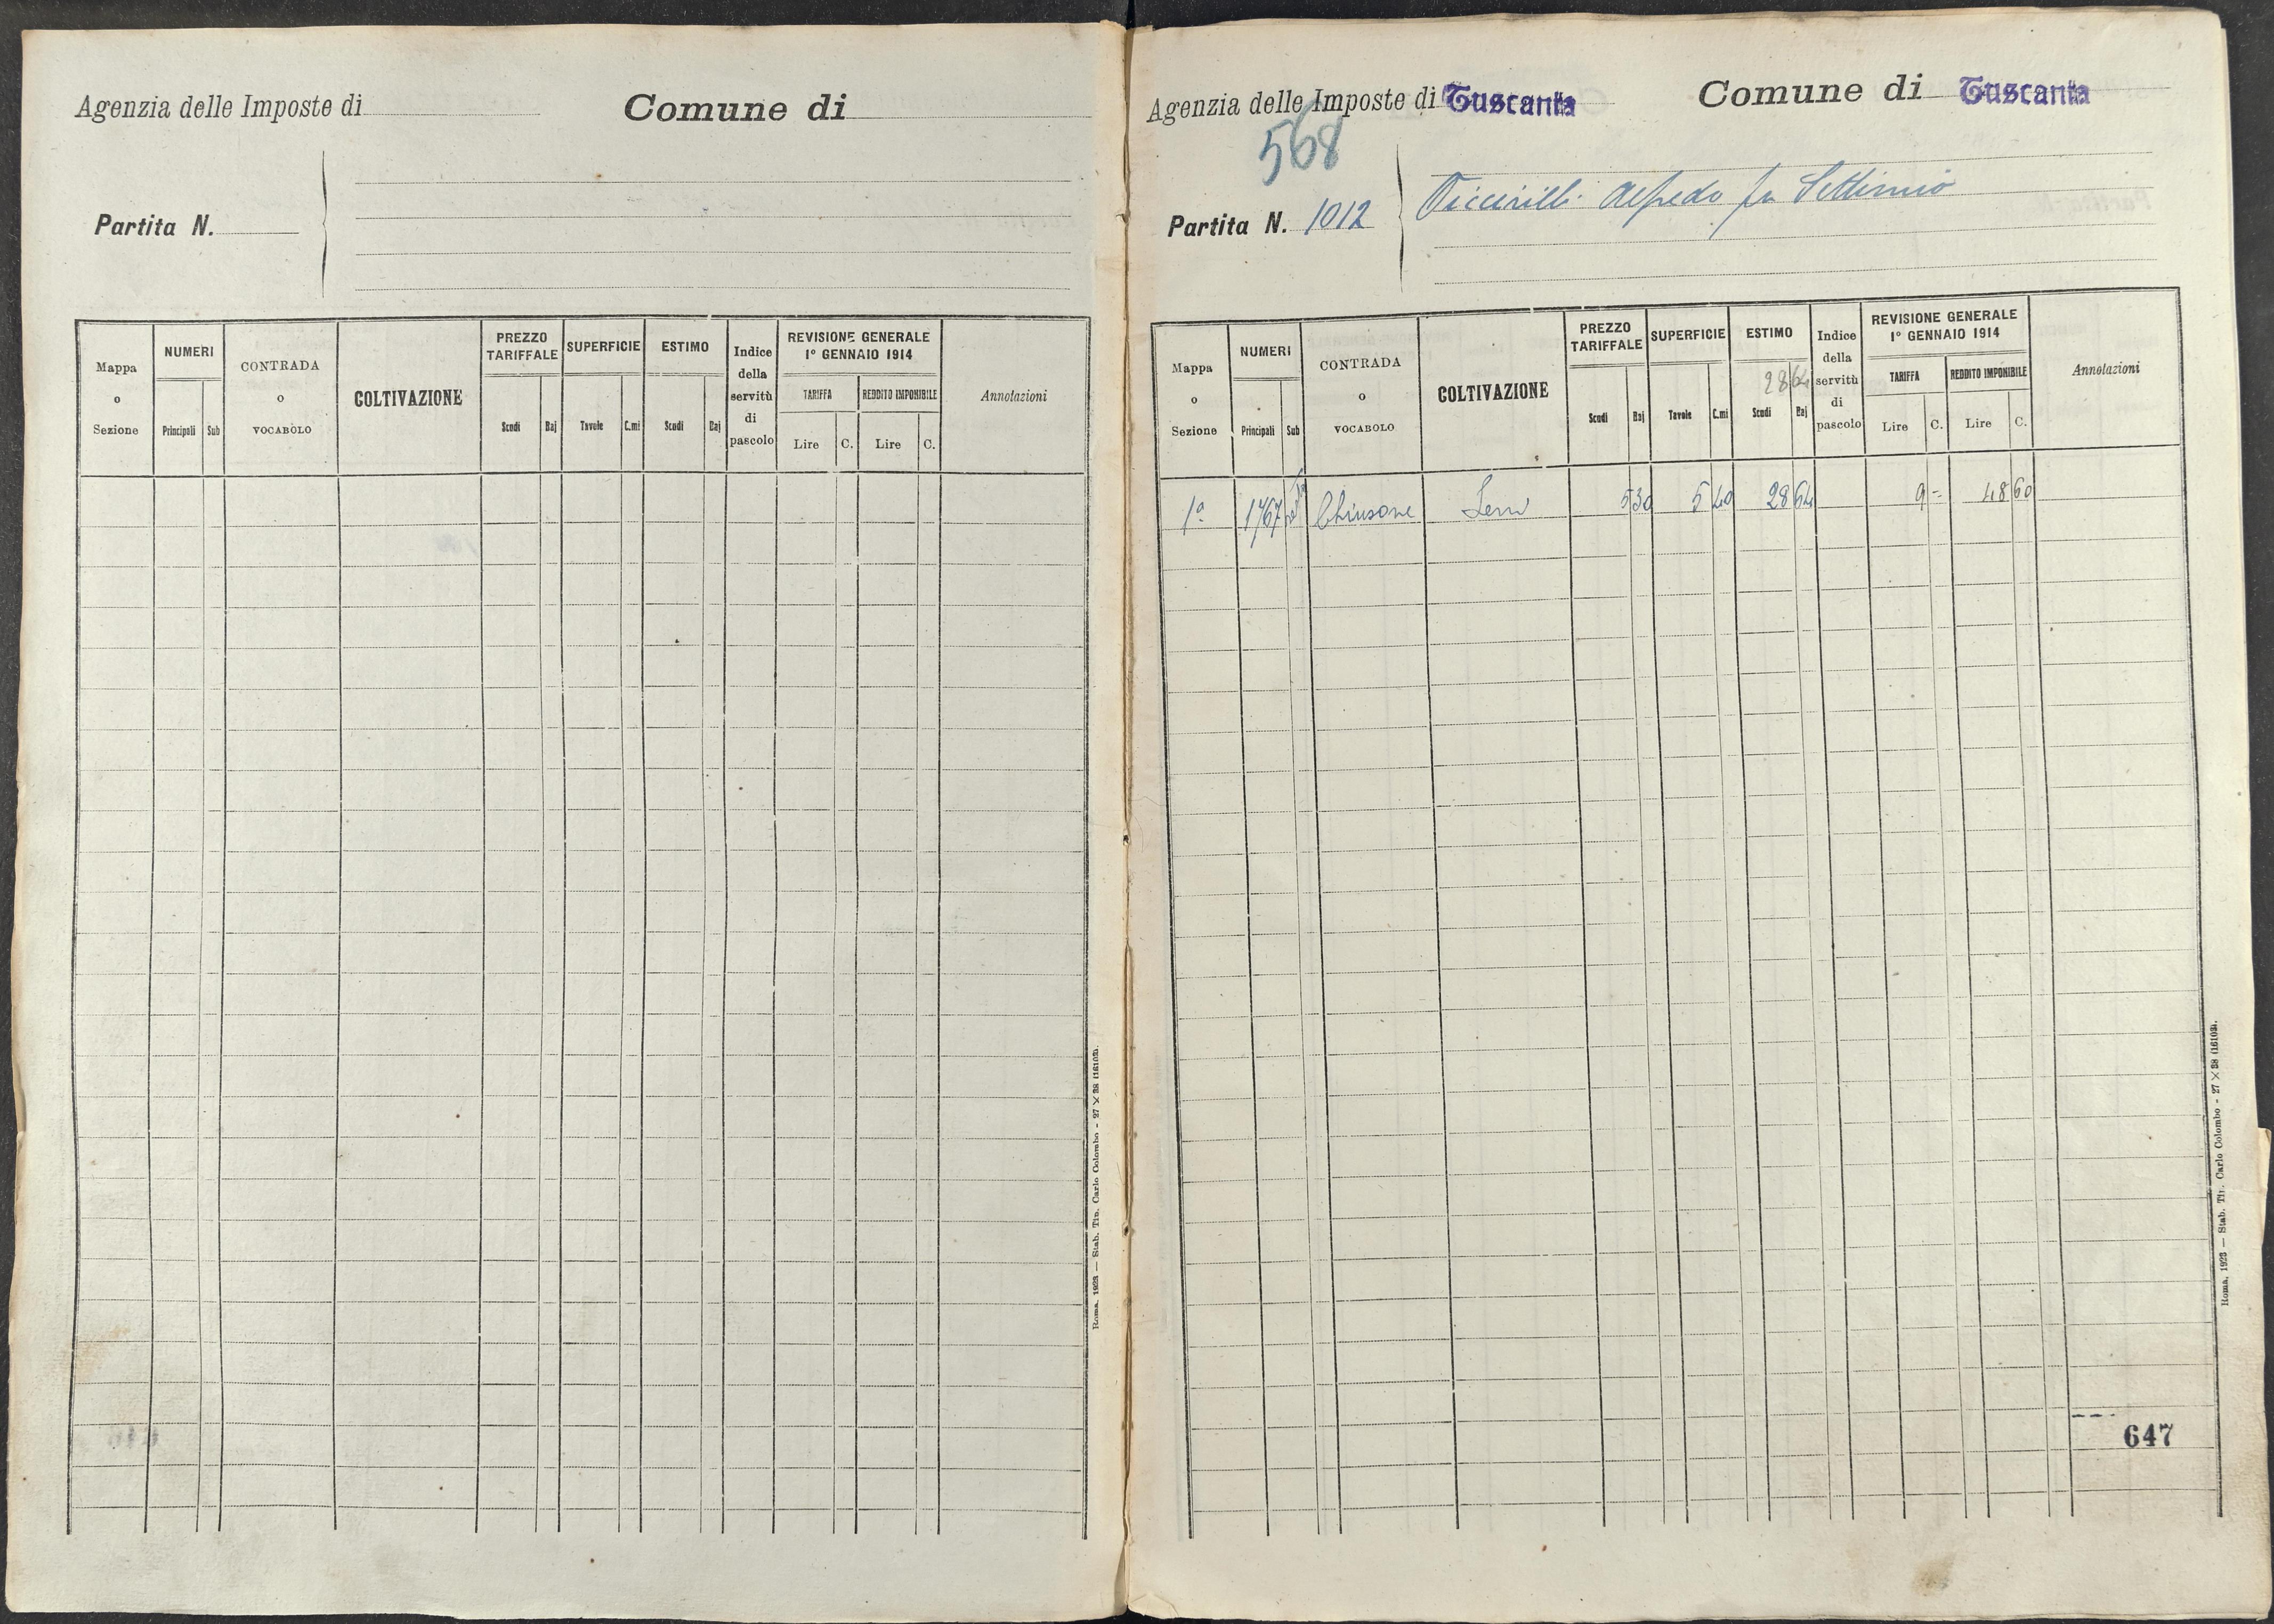 Agenzia delle Imposte di
Comune di
Partita N.
Mappa o Sezione
NUMERI
Principali
Sub
CONTRADA o VOCABOLO
COLTIVAZIONE
PREZZO TARIFFALE
Scudi
Baj
SUPERFICIE
Tavole
C.mi
ESTIMO
Scudi
Baj
Indice della servitù di pascolo
REVISIONE GENERALE 1º GENNAIO 1914
TARIFFA
Lire
C.
REDDITO IMPONIBILE
Lire
C.
Annotazioni
Roma, 1923 — Stab. Tip. Carlo Colombo - 27 × 38 (16103).
Agenzia delle Imposte di Tuscania
Comune di Tuscania
568
Partita N. 1012
Piccirilli Alfredo fu Settimio
Mappa o Sezione
NUMERI
Principali
Sub
CONTRADA o VOCABOLO
COLTIVAZIONE
PREZZO TARIFFALE
Scudi
Baj
SUPERFICIE
Tavole
C.mi
ESTIMO
28 64
Scudi
Baj
Indice della servitù di pascolo
REVISIONE GENERALE 1º GENNAIO 1914
TARIFFA
Lire
C.
REDDITO IMPONIBILE
Lire
C.
Annotazioni
1ª 1767 Chiusone Sem 5 30 5 40 28 64 9 - 48 60
647
Roma, 1923 — Stab. Tip. Carlo Colombo - 27 × 38 (16103).